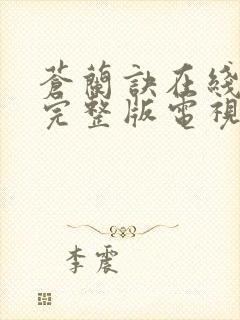 蒼蘭訣在綫
完整版電視
李震